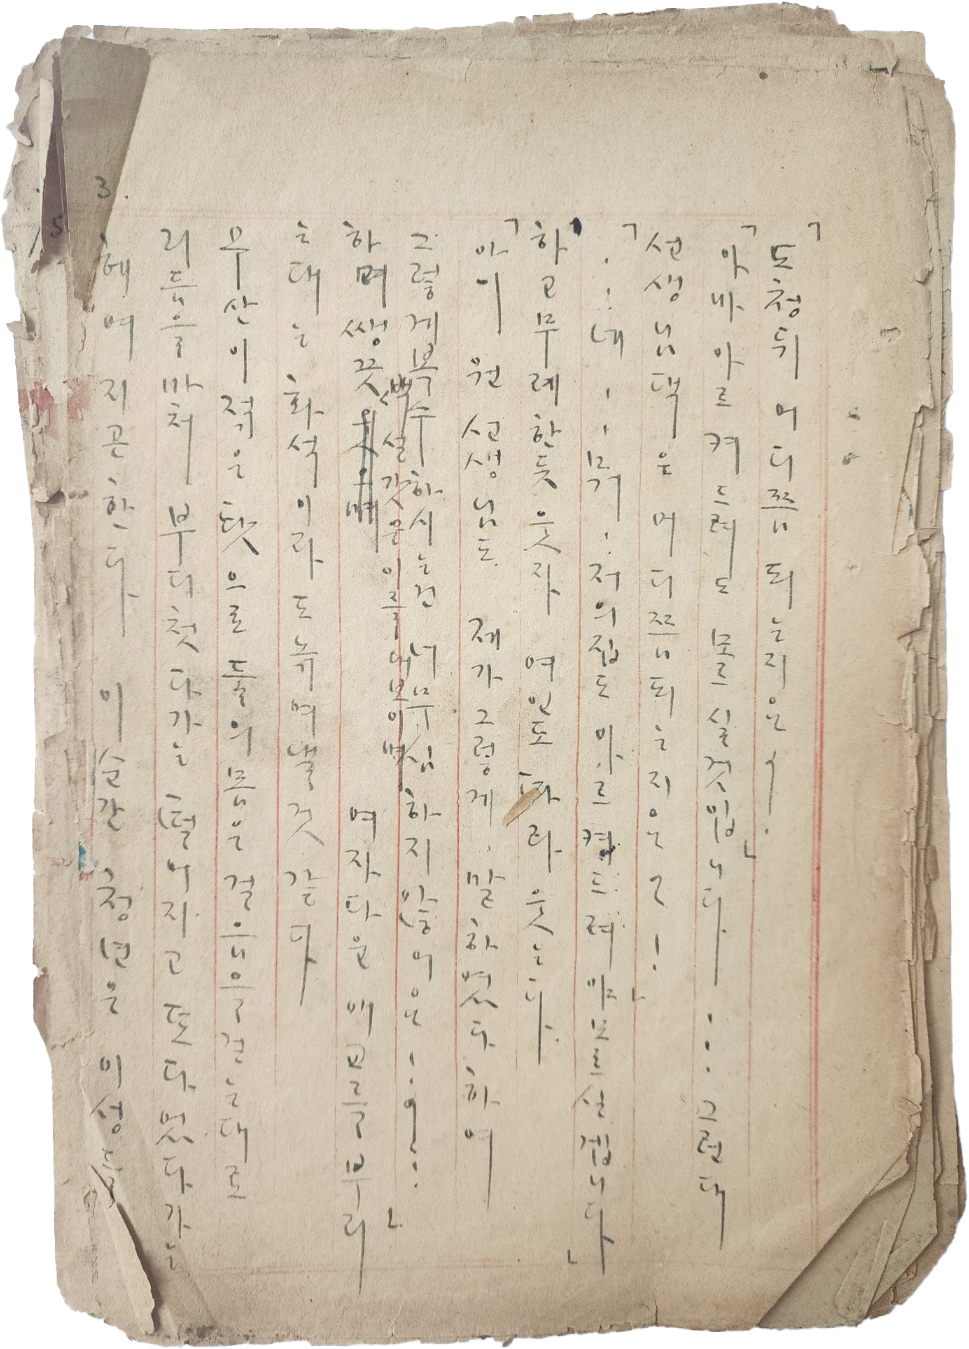 「도청뒤 어디쯤 되는지운 !.
「아바 아르켜 드려도 모르실것입니다」 ... 그런대
선생님댁은 어디쯤되는지운 !
「..네..뭐.저의집도 아르켜드려야 모르실겝니다」
하고 무례한듯 웃자 여인도 따라 웃는다.
「아이 원 선생님도. 제가 그렇게. 말하였다하여
그렇게복수 하시는건 너무심 하지 않어운 !.
하며 쌩끗 백설갓은이를내보이며 여자다운 애교를부리
는대는 화석이라도 녹여낼것 같다
무산이 적은 탓으로 둘의몸은 걸음을걷는대로
리듬을마처 부디첫다가는 떨어지고 또다었다가는
헤여지곤한다 이순간 청년은 이성을
3.
5